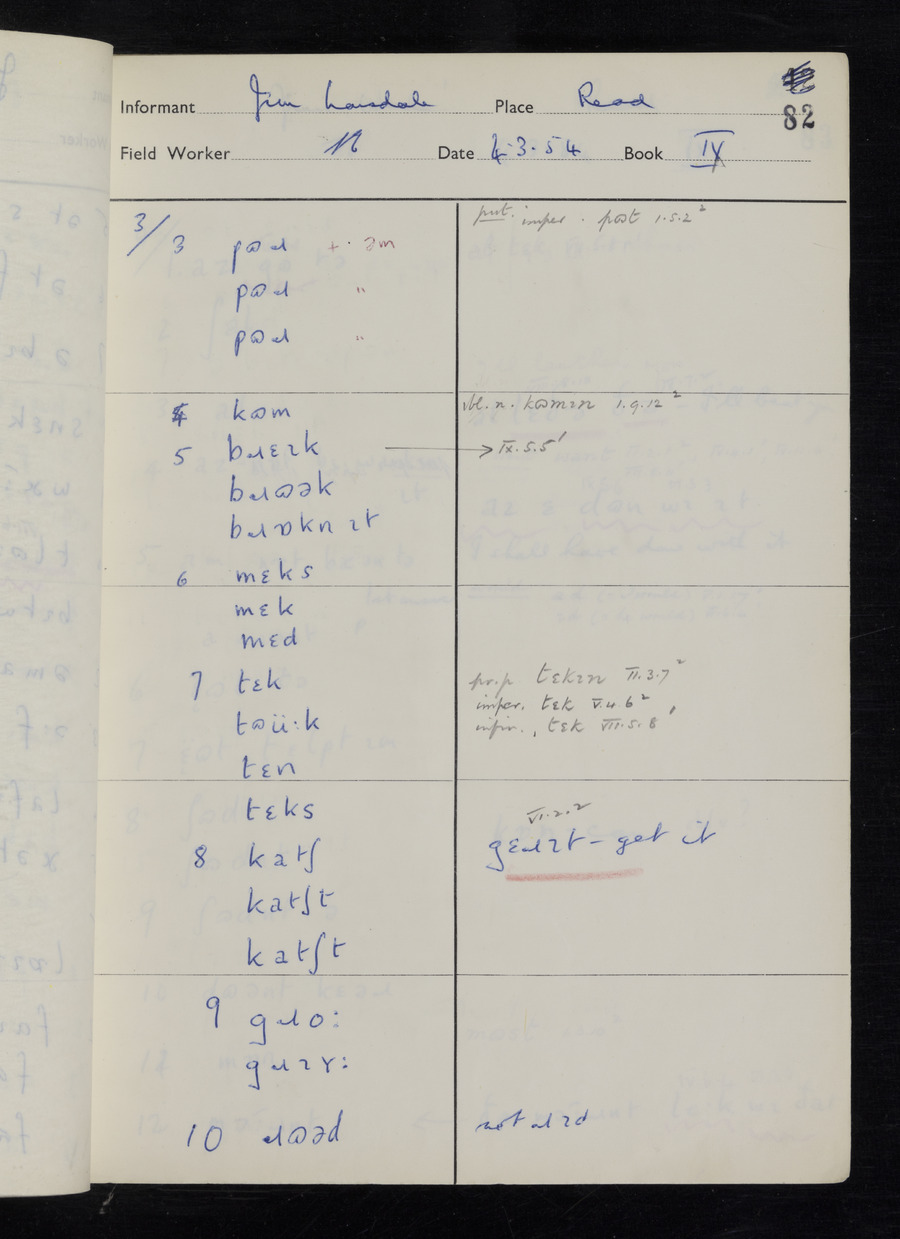 Informant Jim Lonsdale Place Read
82
Field Worker N Date 4.3.54 Book IX
3/ 3 pʊɹ + . əm
pʊɹ "
pʊɹ "
put. imper. pʊt 1.5.2²
4 kʊm
vbl. n. kʊmɪn 1.9.12²
5 bɹɛɪk → IX.5.5¹
bɹʊək
bɹɒkn ɪt
6 mɛks
mɛk
mɛd
7 tɛk
pr.p tɛkɪn II.3.7²
imper. tɛk V.4.6²,
infin., tɛk VII.5.8
tʊü:k
tɛn
tɛks
8 katʃ
VI.2.2
gɛɹɪt – get it
katʃt
katʃt
9 gɹo:
gɹɪʏ:
10 ɹʊəd
not ɹɪd